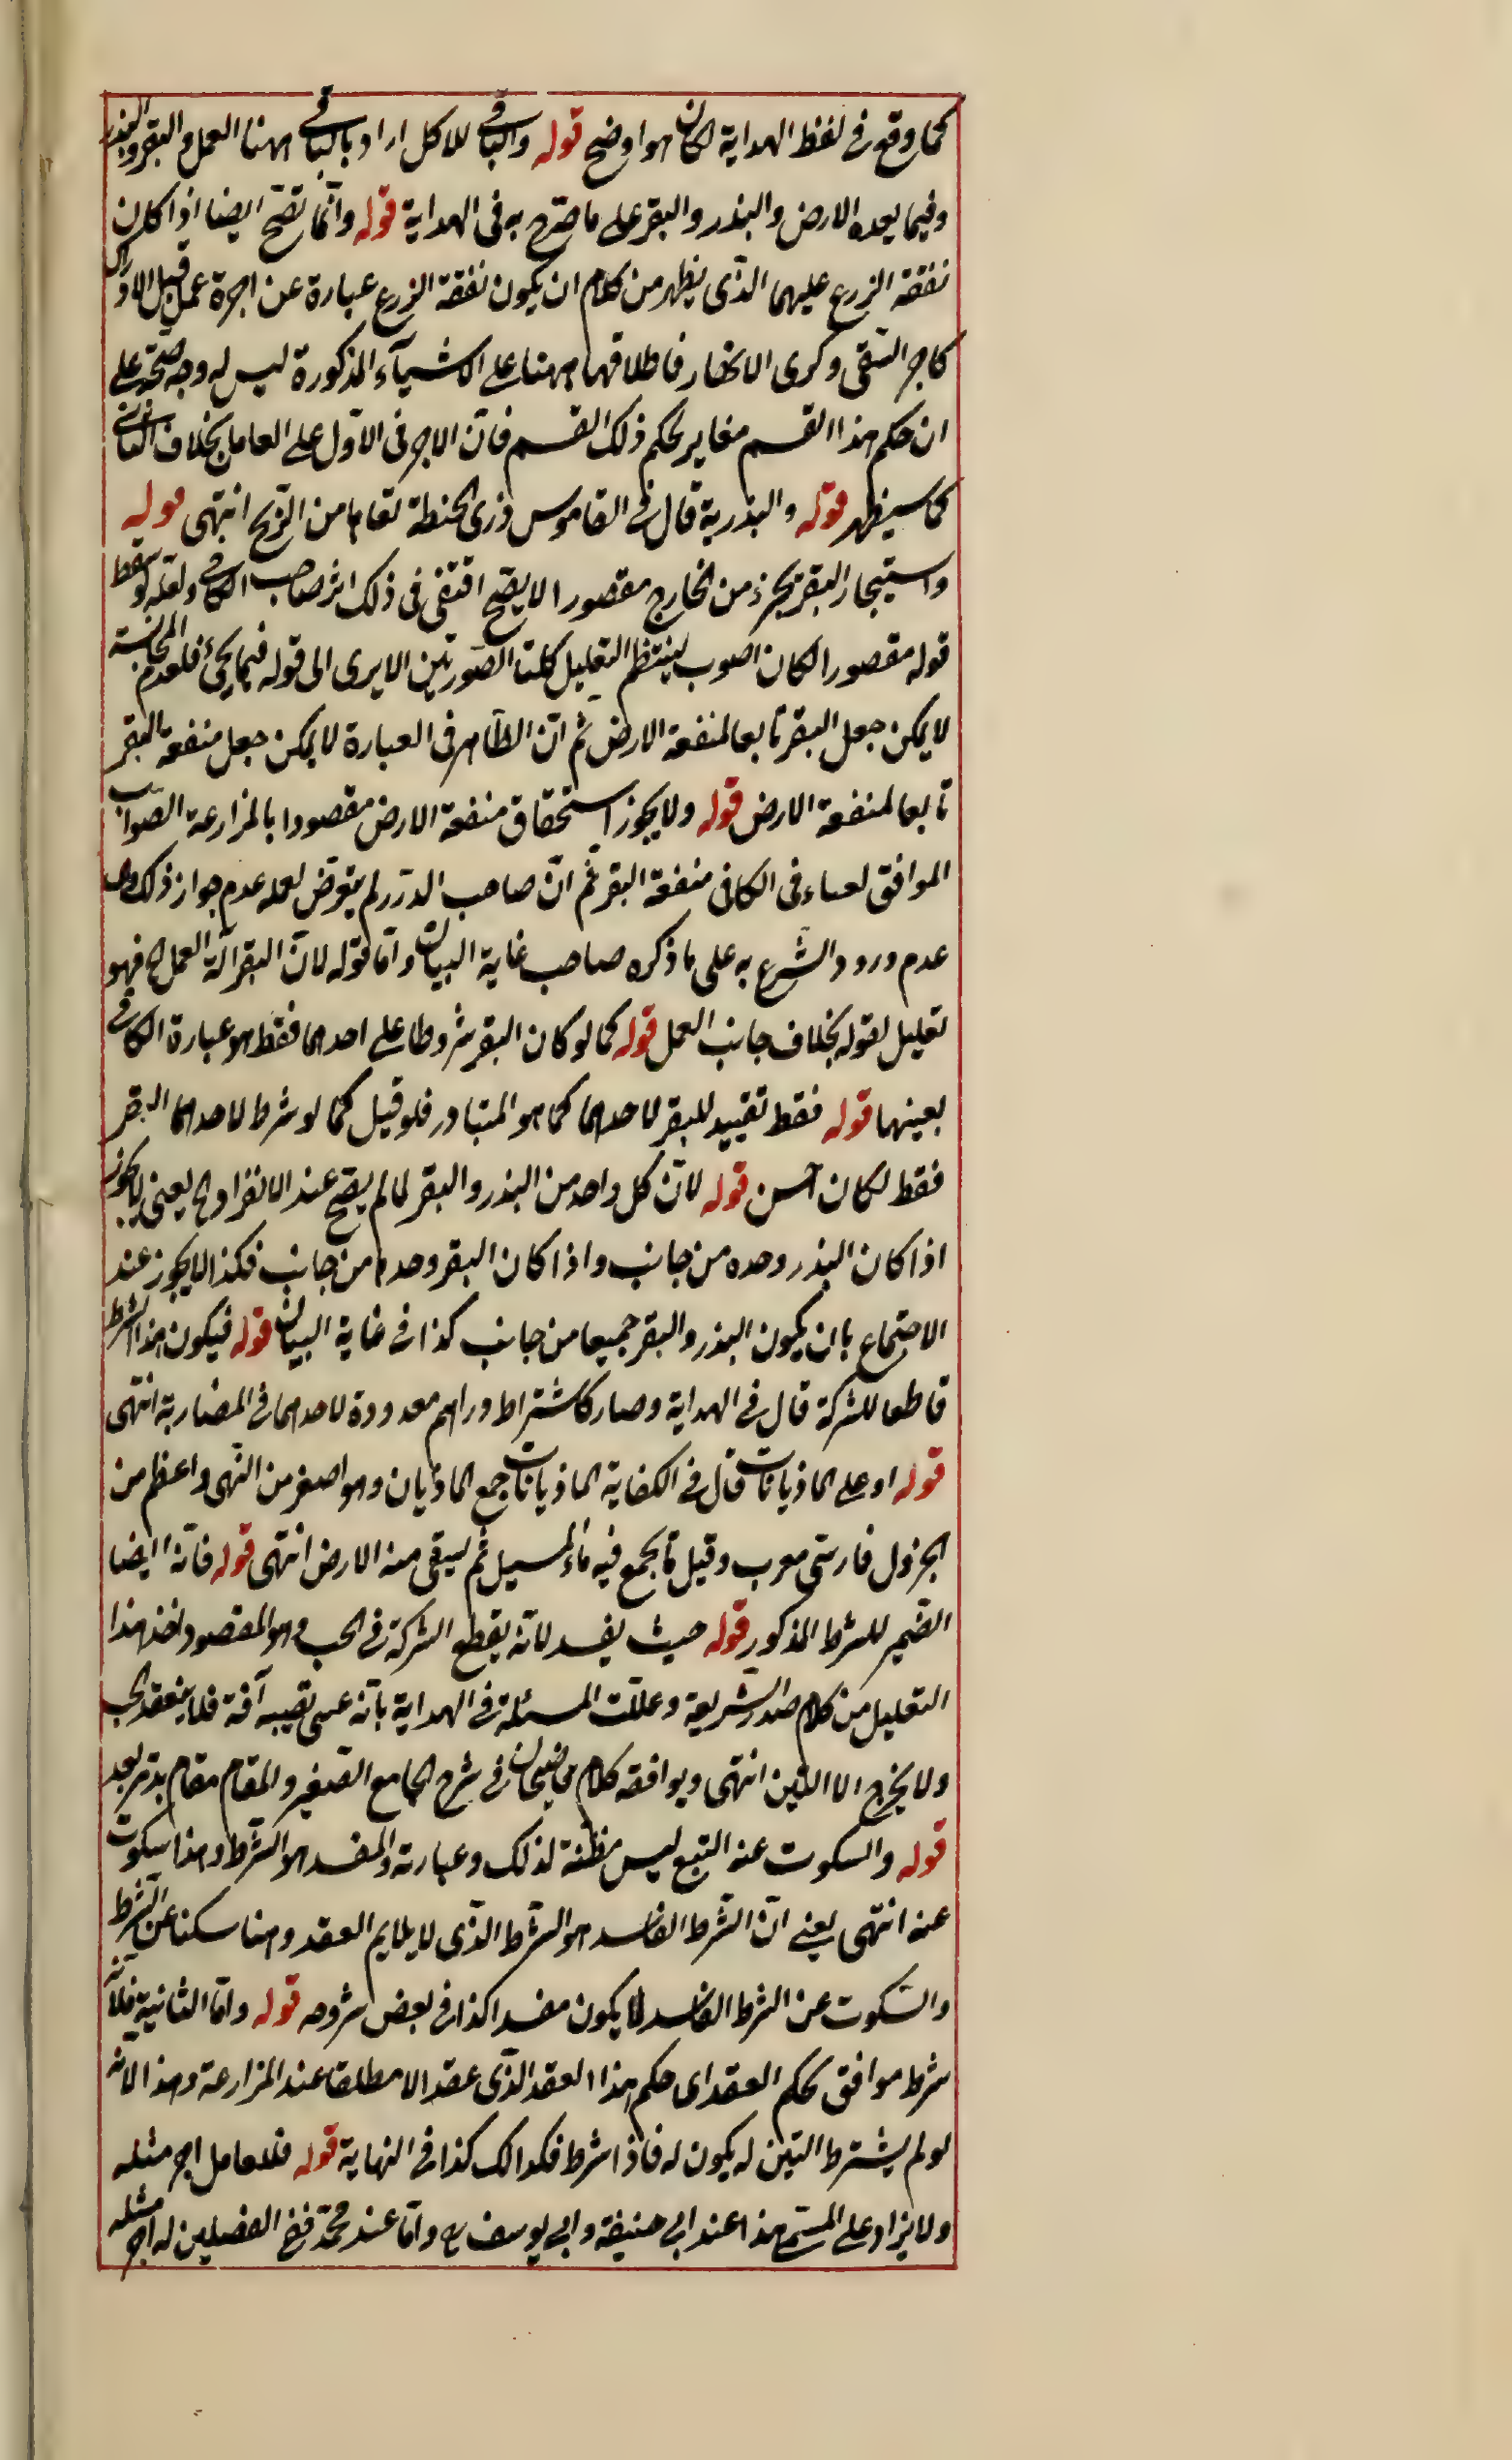 كما وقع في لفظ الهداية لكان هو اوضح قوله والباقي للاكل اراد بالباقي ههنا العمل والبقر والبذر
وفيما بعده الارض والبذر والبقر على ما صرح به في الهداية قوله وانما تصح ايضا اذا كان
نفقة الزرع عليهما الذي يظهر من كلامه ان يكون نفقة الزرع عبارة عن اجرة عمل قبل الادراك
كاجر السقي وكرى الانهار فاطلاقها ههنا على الاشيآء المذكورة ليس له وجه صحة على
ان حكم هذا القسم مغاير لحكم ذلك القسم فان الاجر في الاول على العامل بخلاف الثاني
كما سيظهر قوله والبذرية قال في القاموس ذرى الحنطة نقاها من الريح انتهى قوله
واستيجار البقر بجزء من الخارج مقصورا لا يصح اقتفى في ذلك اثر صاحب الكافي ولعله لو سقط
قوله مقصورا لكان اصوب لينتظم التعليل كلتا الصورتين الا يرى الى قوله فيما يجئ فلعدم المجانسة
لا يمكن جعل البقر تابعا لمنفعة الارض ثم ان الظاهر في العبارة لا يمكن جعل منفعة البقر
تابعا لمنفعة الارض قوله ولا يجوز استحقاق منفعة الارض مقصودا بالمزارعة الصواب
الموافق لما في الكافي منفعة البقر ثم ان صاحب الدرر لم يتعرض لعلة عدم جواز ذلك وهي
عدم ورود الشرع به على ما ذكره صاحب غاية البيان واما قوله لان البقر آلة العمل الخ فهو
تعليل لقوله بخلاف جانب العمل قوله كما لو كان البقر مشروطا على احدهما فقط هو عبارة الكافي
بعينها قوله فقط تقييد للبقر لا حدهما كما هو المتبادر فلو قيل كما لو شرط لاحدهما البقر
فقط لكان احسن قوله لان كل واحد من البذر والبقر لما لم يصح عند الانفراد الخ يعني لا يجوز
اذا كان البذر وحده من جانب واذا كان البقر وحده من جانب فكذا لا يجوز عند
الاجتماع بان يكون البذر والبقر جميعا من جانب كذا في غاية البيان قوله فيكون هذا الشرط
قاطعا للشركة قال في الهداية وصار كاشتراط دراهم معدودة لاحدهما في المضاربة انتهى
قوله او على الماذيانات قال في الكفاية الماذيانات جمع الماذيان وهو اصغر من النهر واعظم من
الجدول فارسي معرب وقيل ما يجمع فيه ماء السيل ثم يسقى منه الارض انتهى قوله فانه ايضا
الضمير للشرط المذكور قوله حيث يفسد لانه يقطع الشركة في الحب وهو المقصود اخذ هذا
التعليل من كلام صدر الشريعة وعللت المسئلة في الهداية بانه عسى تصيبه آفة فلا ينعقد الحب
ولا يخرج الا التبن انتهى ويوافقه كلام قاضيخان في شرح الجامع الصغير والمقام مقام تدبر بعد
قوله والسكوت عنه التبع ليس مظنة لذلك وعبارته والمفسد هو الشرط وهذا سكوت
عنه انتهى يعني ان الشرط الفاسد هو الشرط الذي لا يلايم العقد وهنا سكتا عن الشرط
والسكوت عن الشرط الفاسد لا يكون مفسدا كذا في بعض شروحه قوله واما الثانية فلانه
شرط موافق لحكم العقد اى حكم هذا العقد الذي عقد لا مطلقا عند المزارعة وهذا لانه
لو لم يشترط التبن له يكون له فاذا شرط فكذلك كذا في النهاية قوله فللعامل اجر مثله
ولا يزاد على المسمى هذا عند ابي حنيفة وابي يوسف رح واما عند محمد ففي الفصلين له اجر مثله